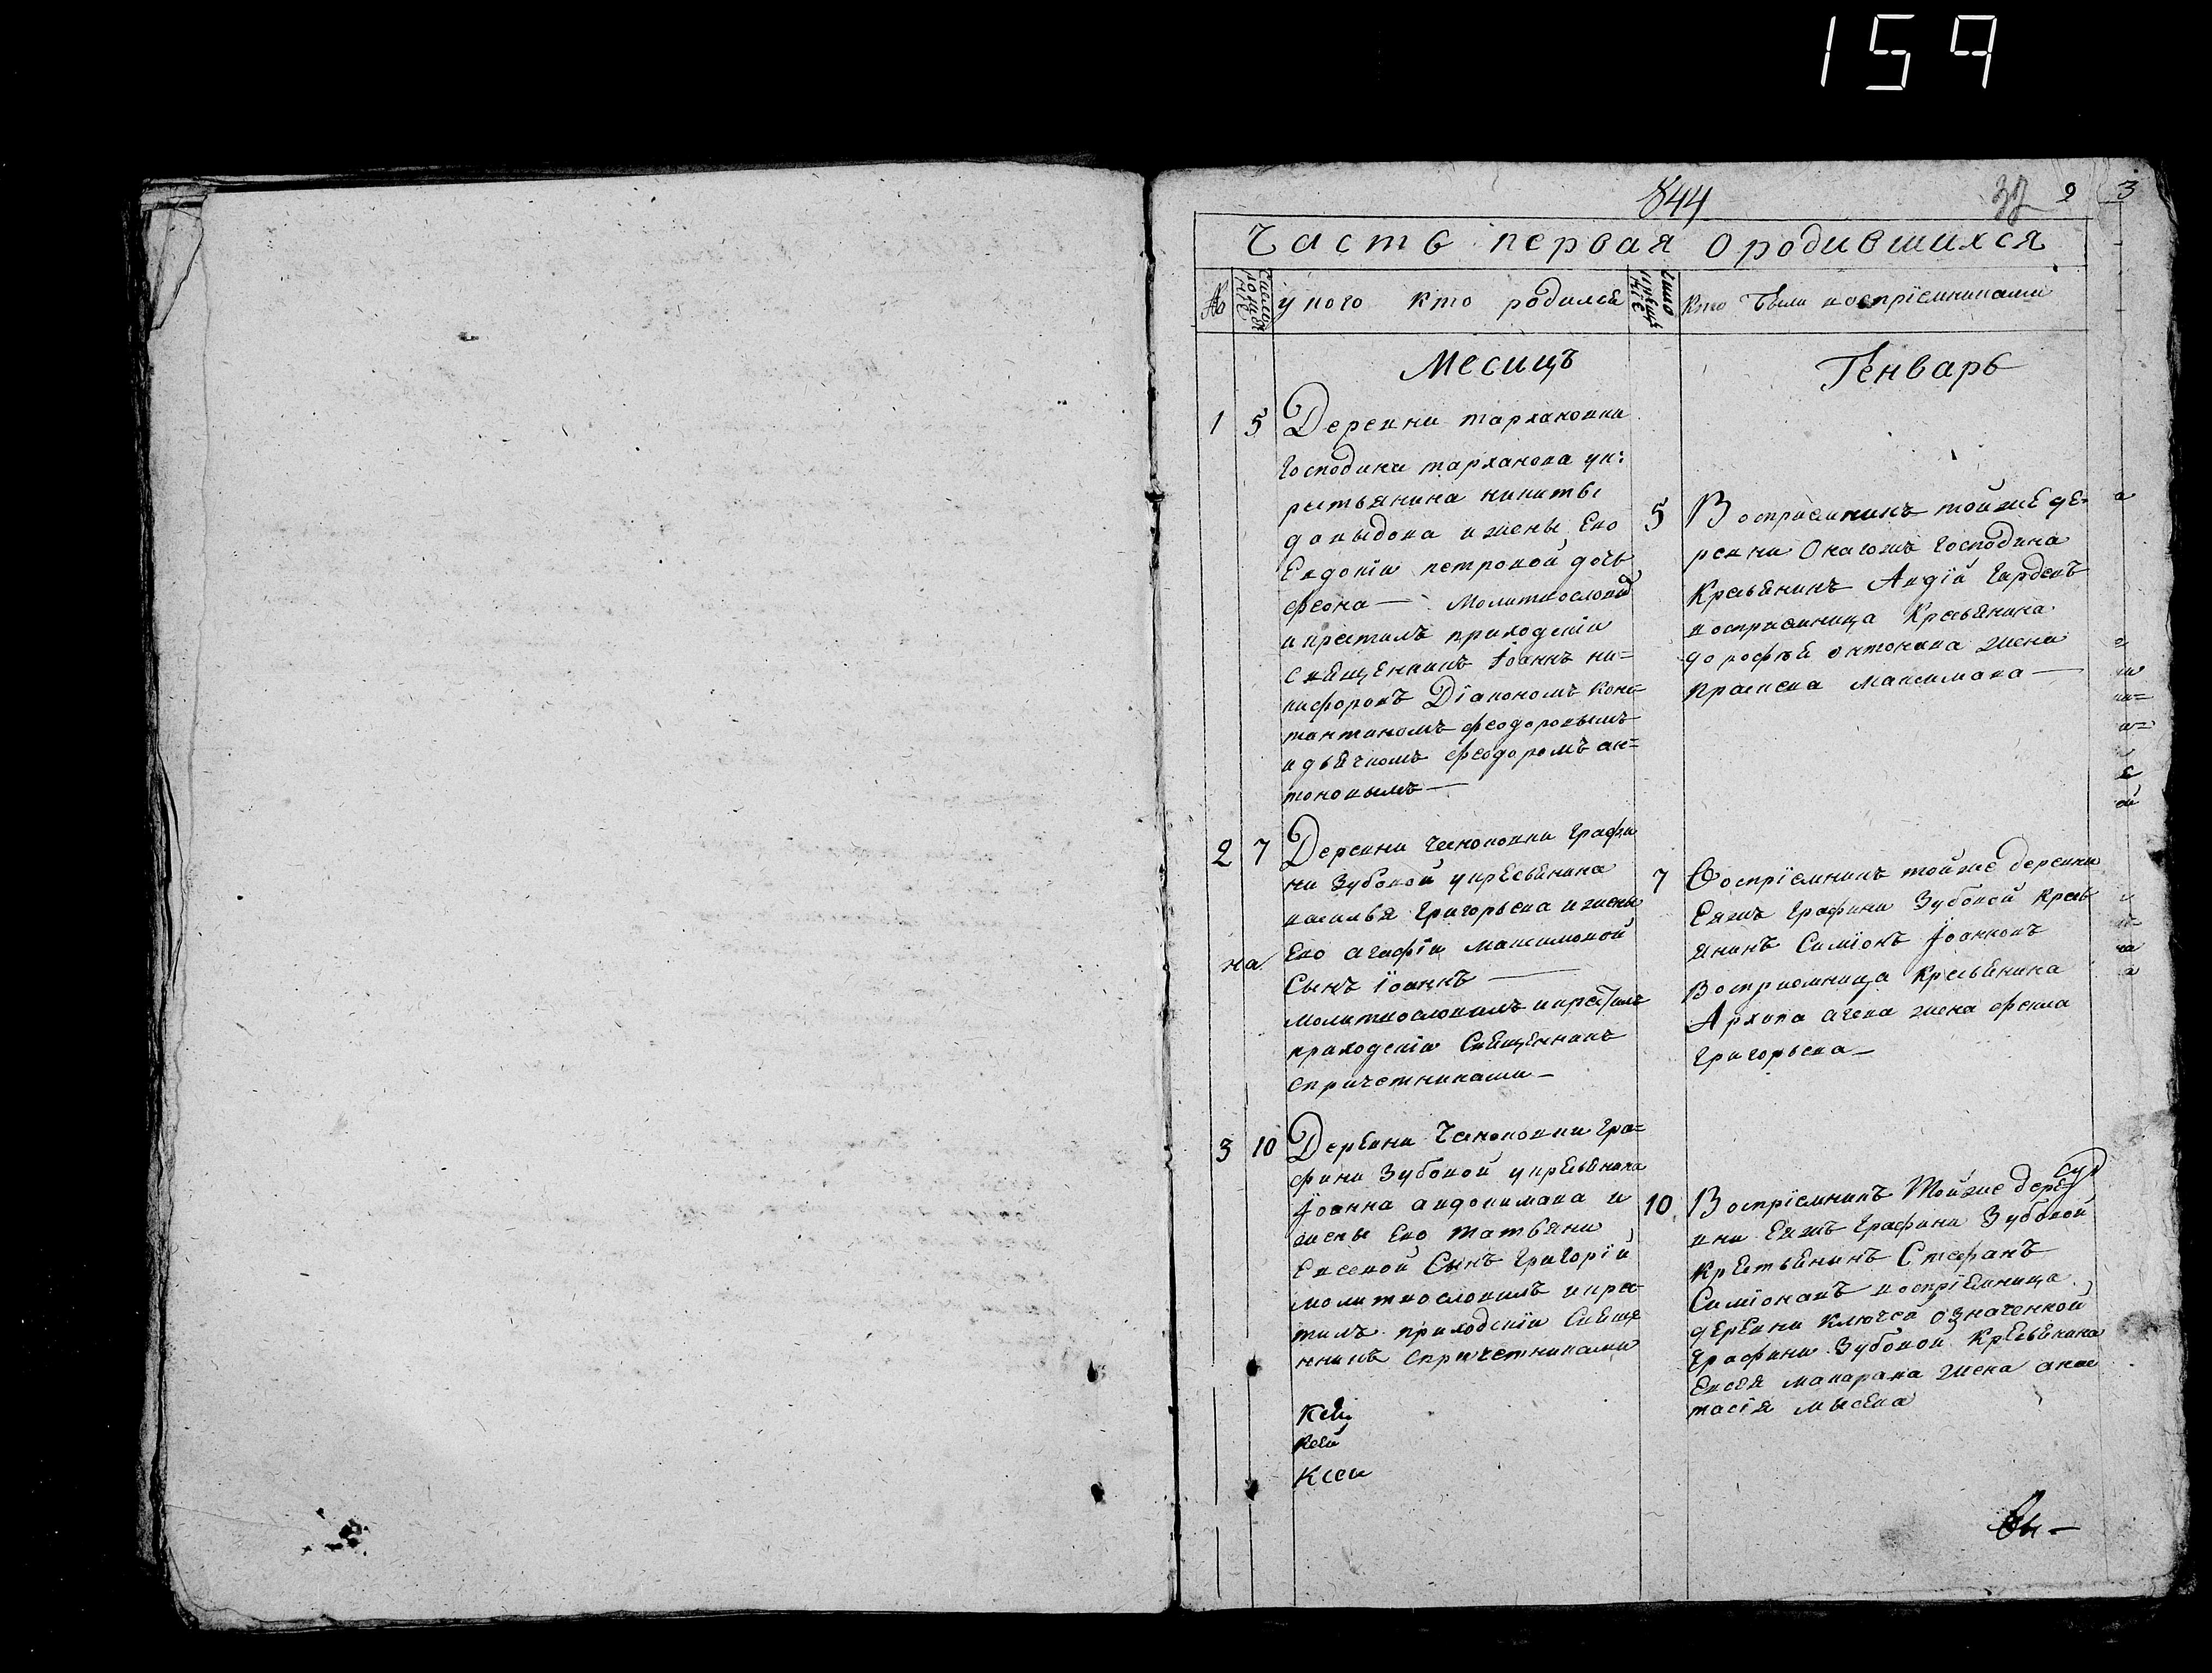 159
844
2 3
Часть первая о родившихся
№
у кого кто родился
кто были воспрїемниками
Месицъ Генварь
1 5 Деревни тархановки
господина тарханова ук:
рестьянина никиты
давыдова и жены Ево
Евдокіи петровой дочь
феона — Молитвословил
и крестилъ приходскіи
священникъ Іоаннъ ни=
кифоровъ Діакономъ Конс=
тантиномъ феодоровымъ
и дьячкомъ феодоромъ ан=
тоновымъ —
5 Восприемникъ тойже де=
ревни Онагожъ господина
Кресьянинъ Авдїй
восприемница Кресьянина
дорофѣй антонова жена
Максимова —
2 7 Деревни графи
ни Зубовой укресьянина
василья григорьева и жены
Ево агафіи максимовой
на
Сынъ їоаннъ —
молитвословилъ и крестилъ
приходскіи Священникъ
спричетниками —
7 Воспрїемникъ тойже деревни
Еяжъ графини Зубовой Кресь
янинъ Симїонъ Їоанновъ
Восприемница Кресьянина
Архипа жена фекла
григорьева —
3 10 Деревни гра=
фини Зубовой укресьянина
Їоанна авдокимова и
жены Ево татьяни
Евсевой Сынъ Григорїй
молитвословилъ и крес
тилъ приходскіи Свяще
нникъ спричетниками
10 Воспрїемникъ Тойже дере=
вни Еяжъ графини Зубовой
Крестьянинъ Стефанъ
Симїонавъ воспрїемница
деревни Ключей означенной
графини Зубовой Кресьянина
Евсея макарава жена анас
тасїя
Ксеи
Вы —